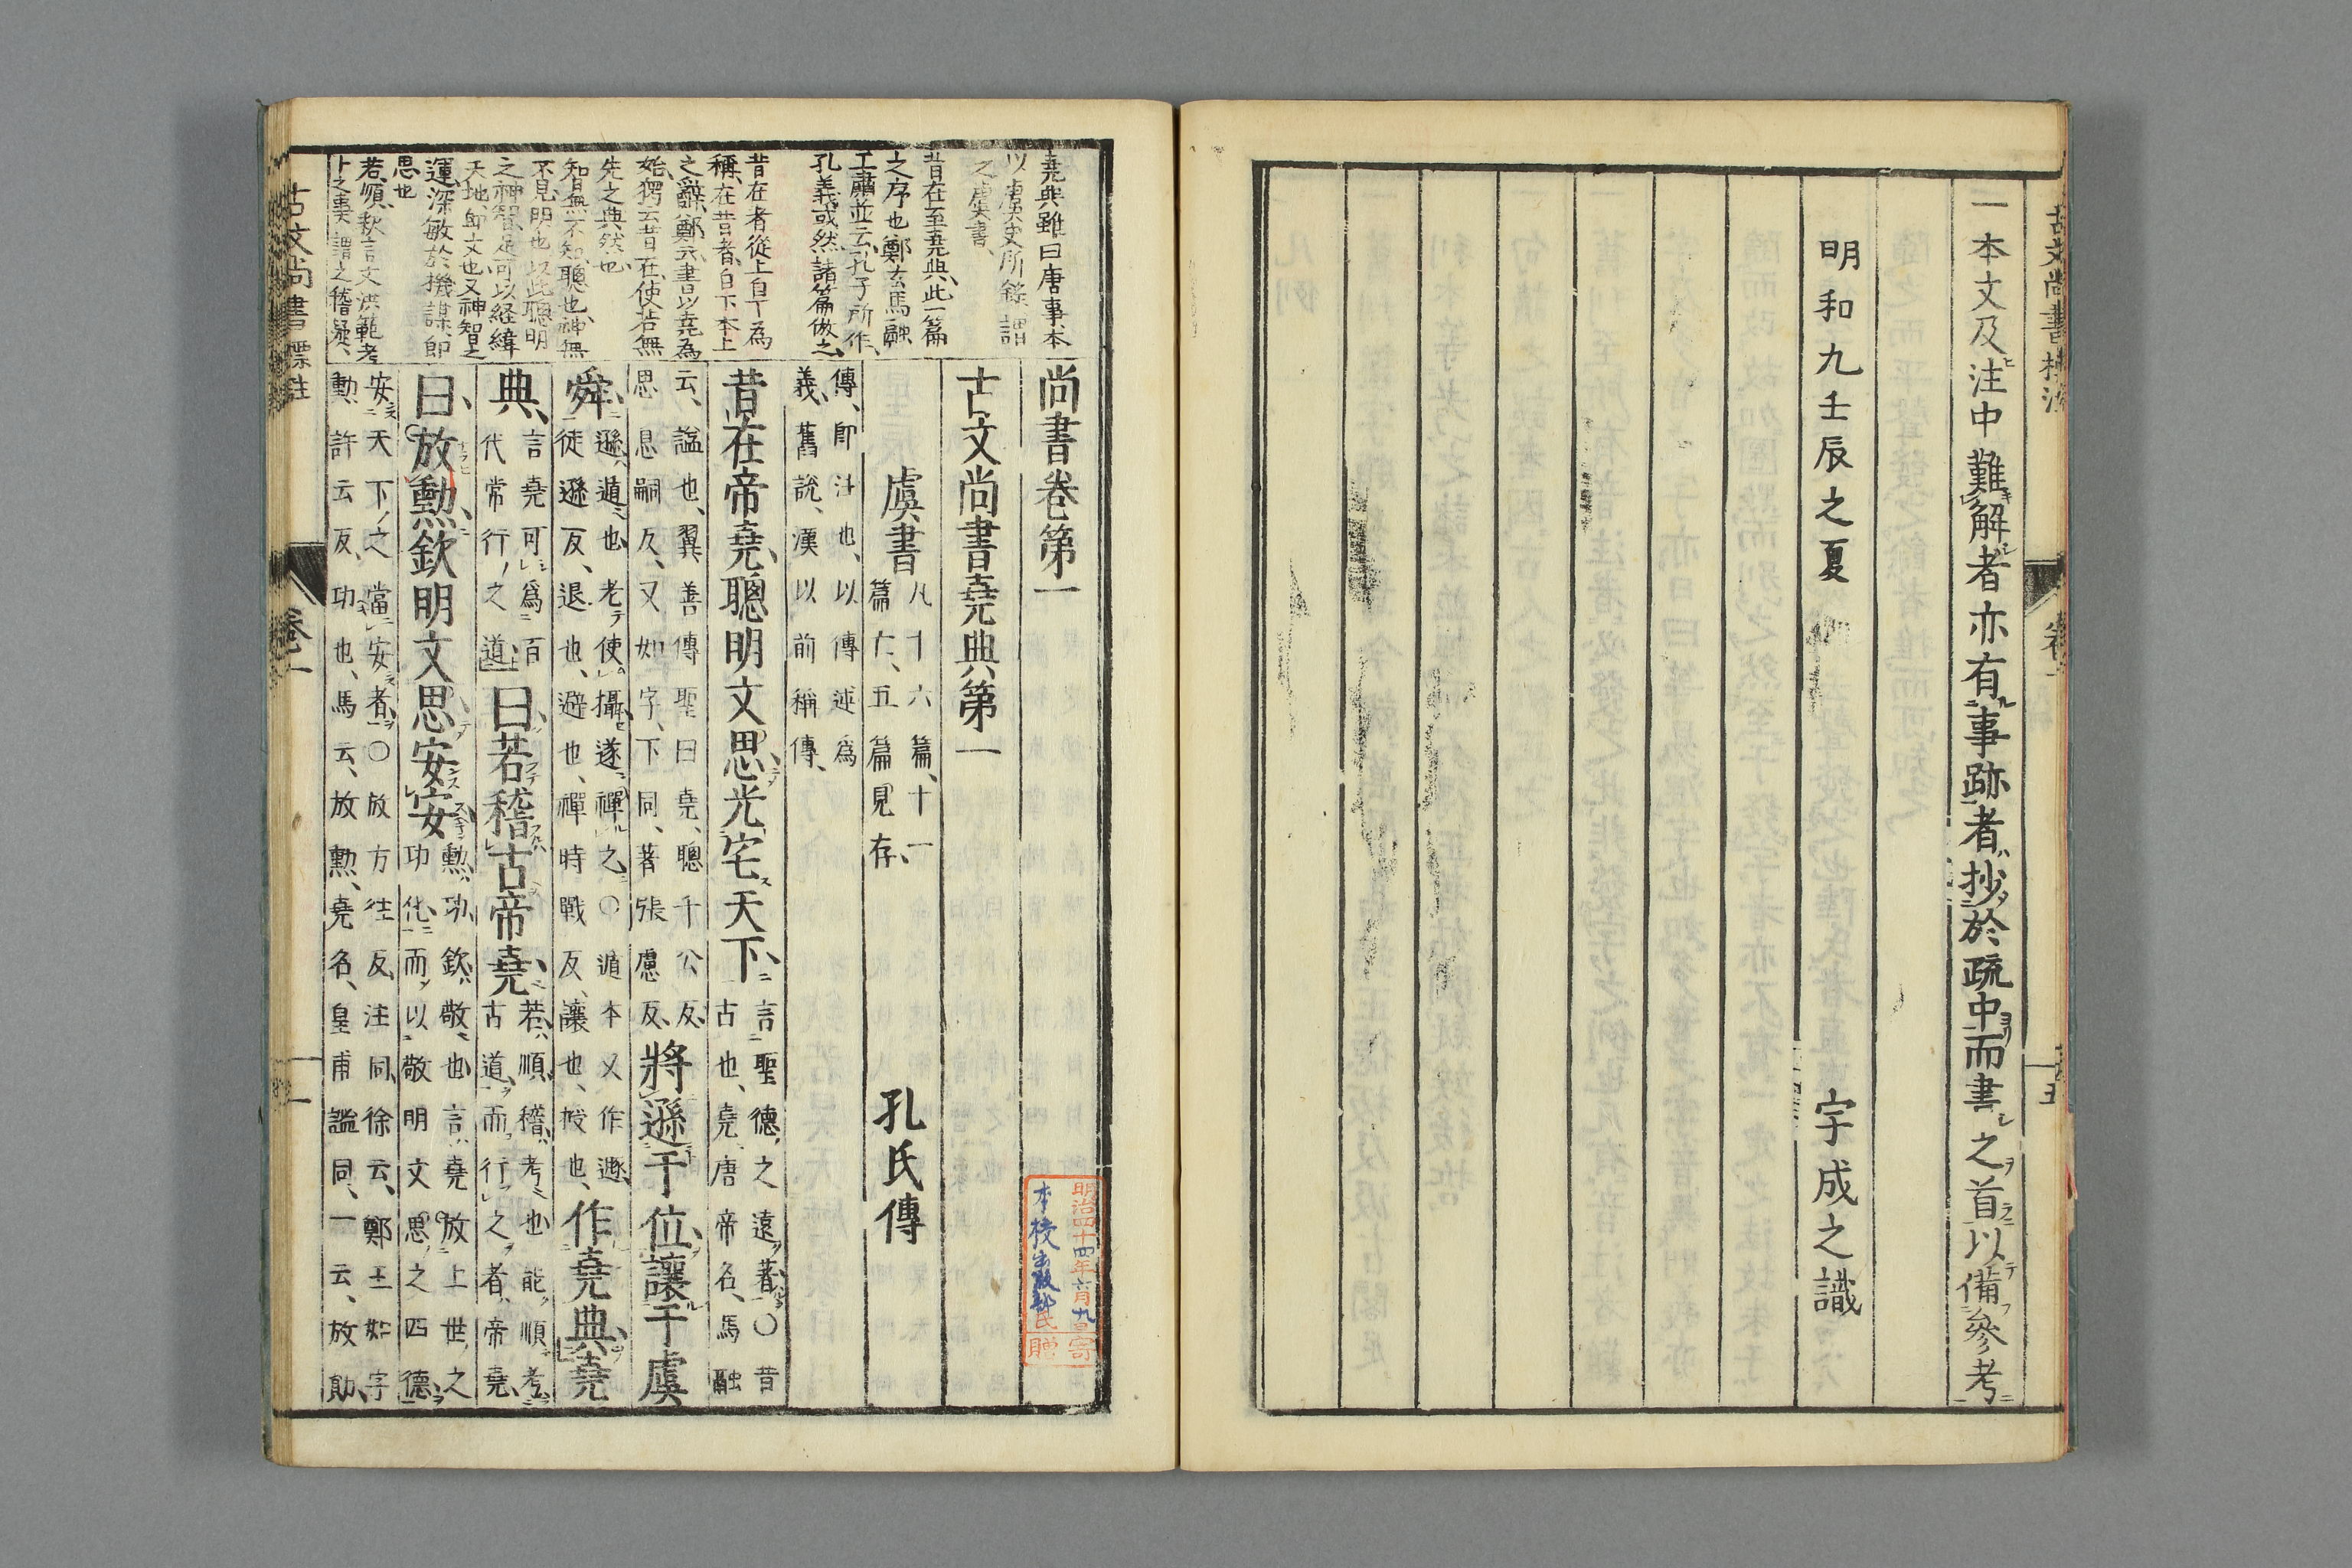 古文尚書標注 卷一
一本文及注中難解者亦有事跡者抄於疏中而書之首以備參考
明和九壬辰之夏
宇成之識
堯典雖曰唐事本
以虞史所錄謂
之虞書、
昔在至堯典、此一篇
之序也鄭玄馬融
王肅並云孔子所作、
孔義或然、諸篇倣之
昔在者從上自下為
稱、在昔者、自下本上
之辭、鄭玄書以堯為
始、猶云昔在、使若無
先之典然也
智無不知、聰也、神無
不見、明也、以此聰明
之神智、足可以経緯
天地、即文也、又神智之
運、深敏於機謀、即
思也
若順釈言文洪範考
卜之事謂之稽疑、
尚書卷第一
古文尚書堯典第一
虞書 凡十六篇、十一篇亡、五篇見存、 孔氏傳
傳、即註也、以傳述爲義、舊說、漢以前稱傳、
昔在帝堯、聰明文思、光宅天下、言聖德之遠著〇昔古也、堯唐帝名、馬融
云、諡也、翼善傳聖曰堯、聰千公反、思息嗣反、又如字、下同、著張慮反、將遜于位、讓于虞
舜、遜遁也、老使攝遂禪之〇遁本又作遯徒遜反、退也、避也、禪時戰反、讓也、授也、作堯典、堯
典、言堯可爲百代常行之道曰若稽古帝堯、若、順、稽、考也能順考古道而行之者、帝堯、
曰、放勳欽明文思安安、勳、功、欽、敬也、言堯放上世之功化而以敬明文思之四德
安天下之當安者〇放方往反、注同、徐云、鄭王如字勳、許云反、功也、馬云、放勳、堯名、皇甫謐同、一云、放勛、
古文尚書標註 卷一 一
明治四十四年六月九日寄贈